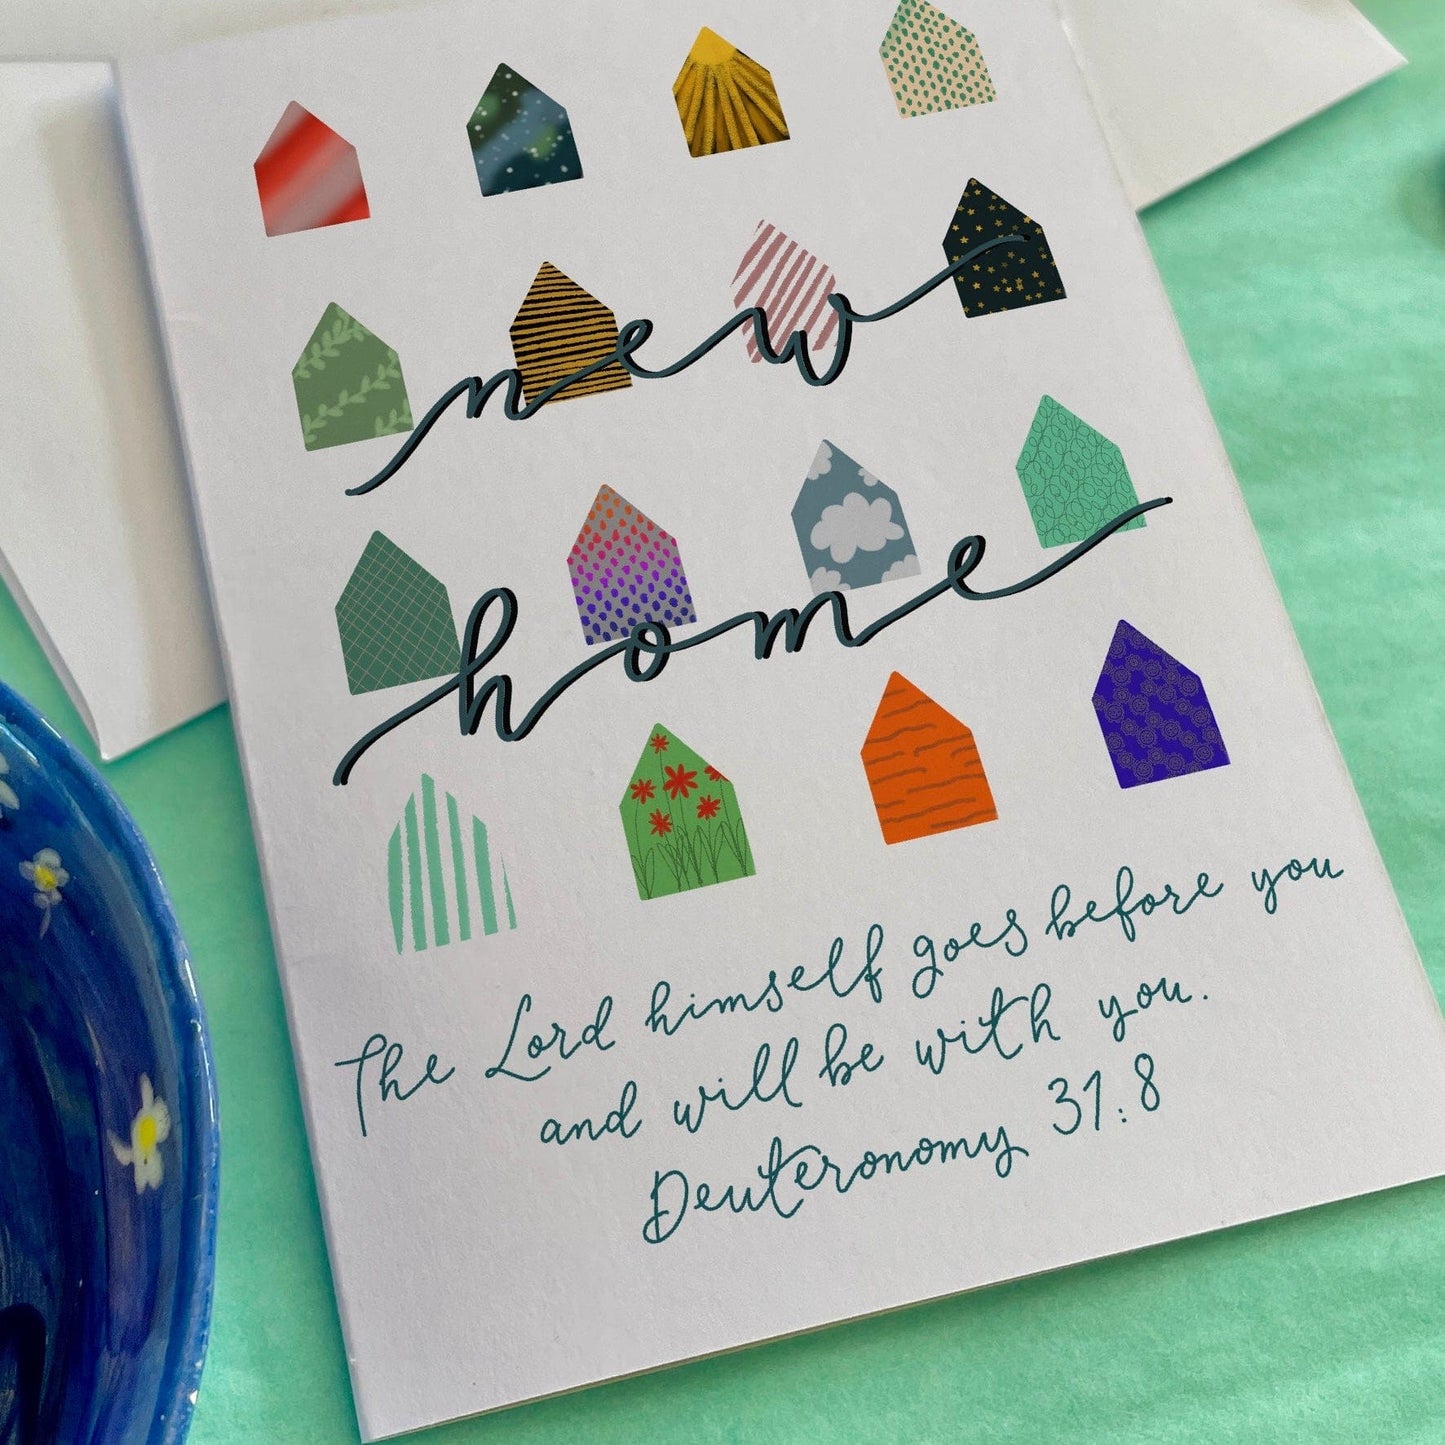 new
home
The Lord himself goes before you
and will be with you.
Deuteronomy 31:8